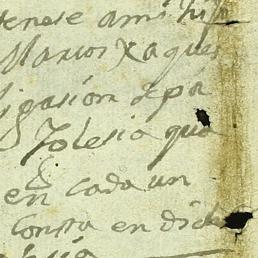 tenese a mi hijo
Marcos Xaques
ligasion de pa
Yglesia que
en cada un
Consta en dicha